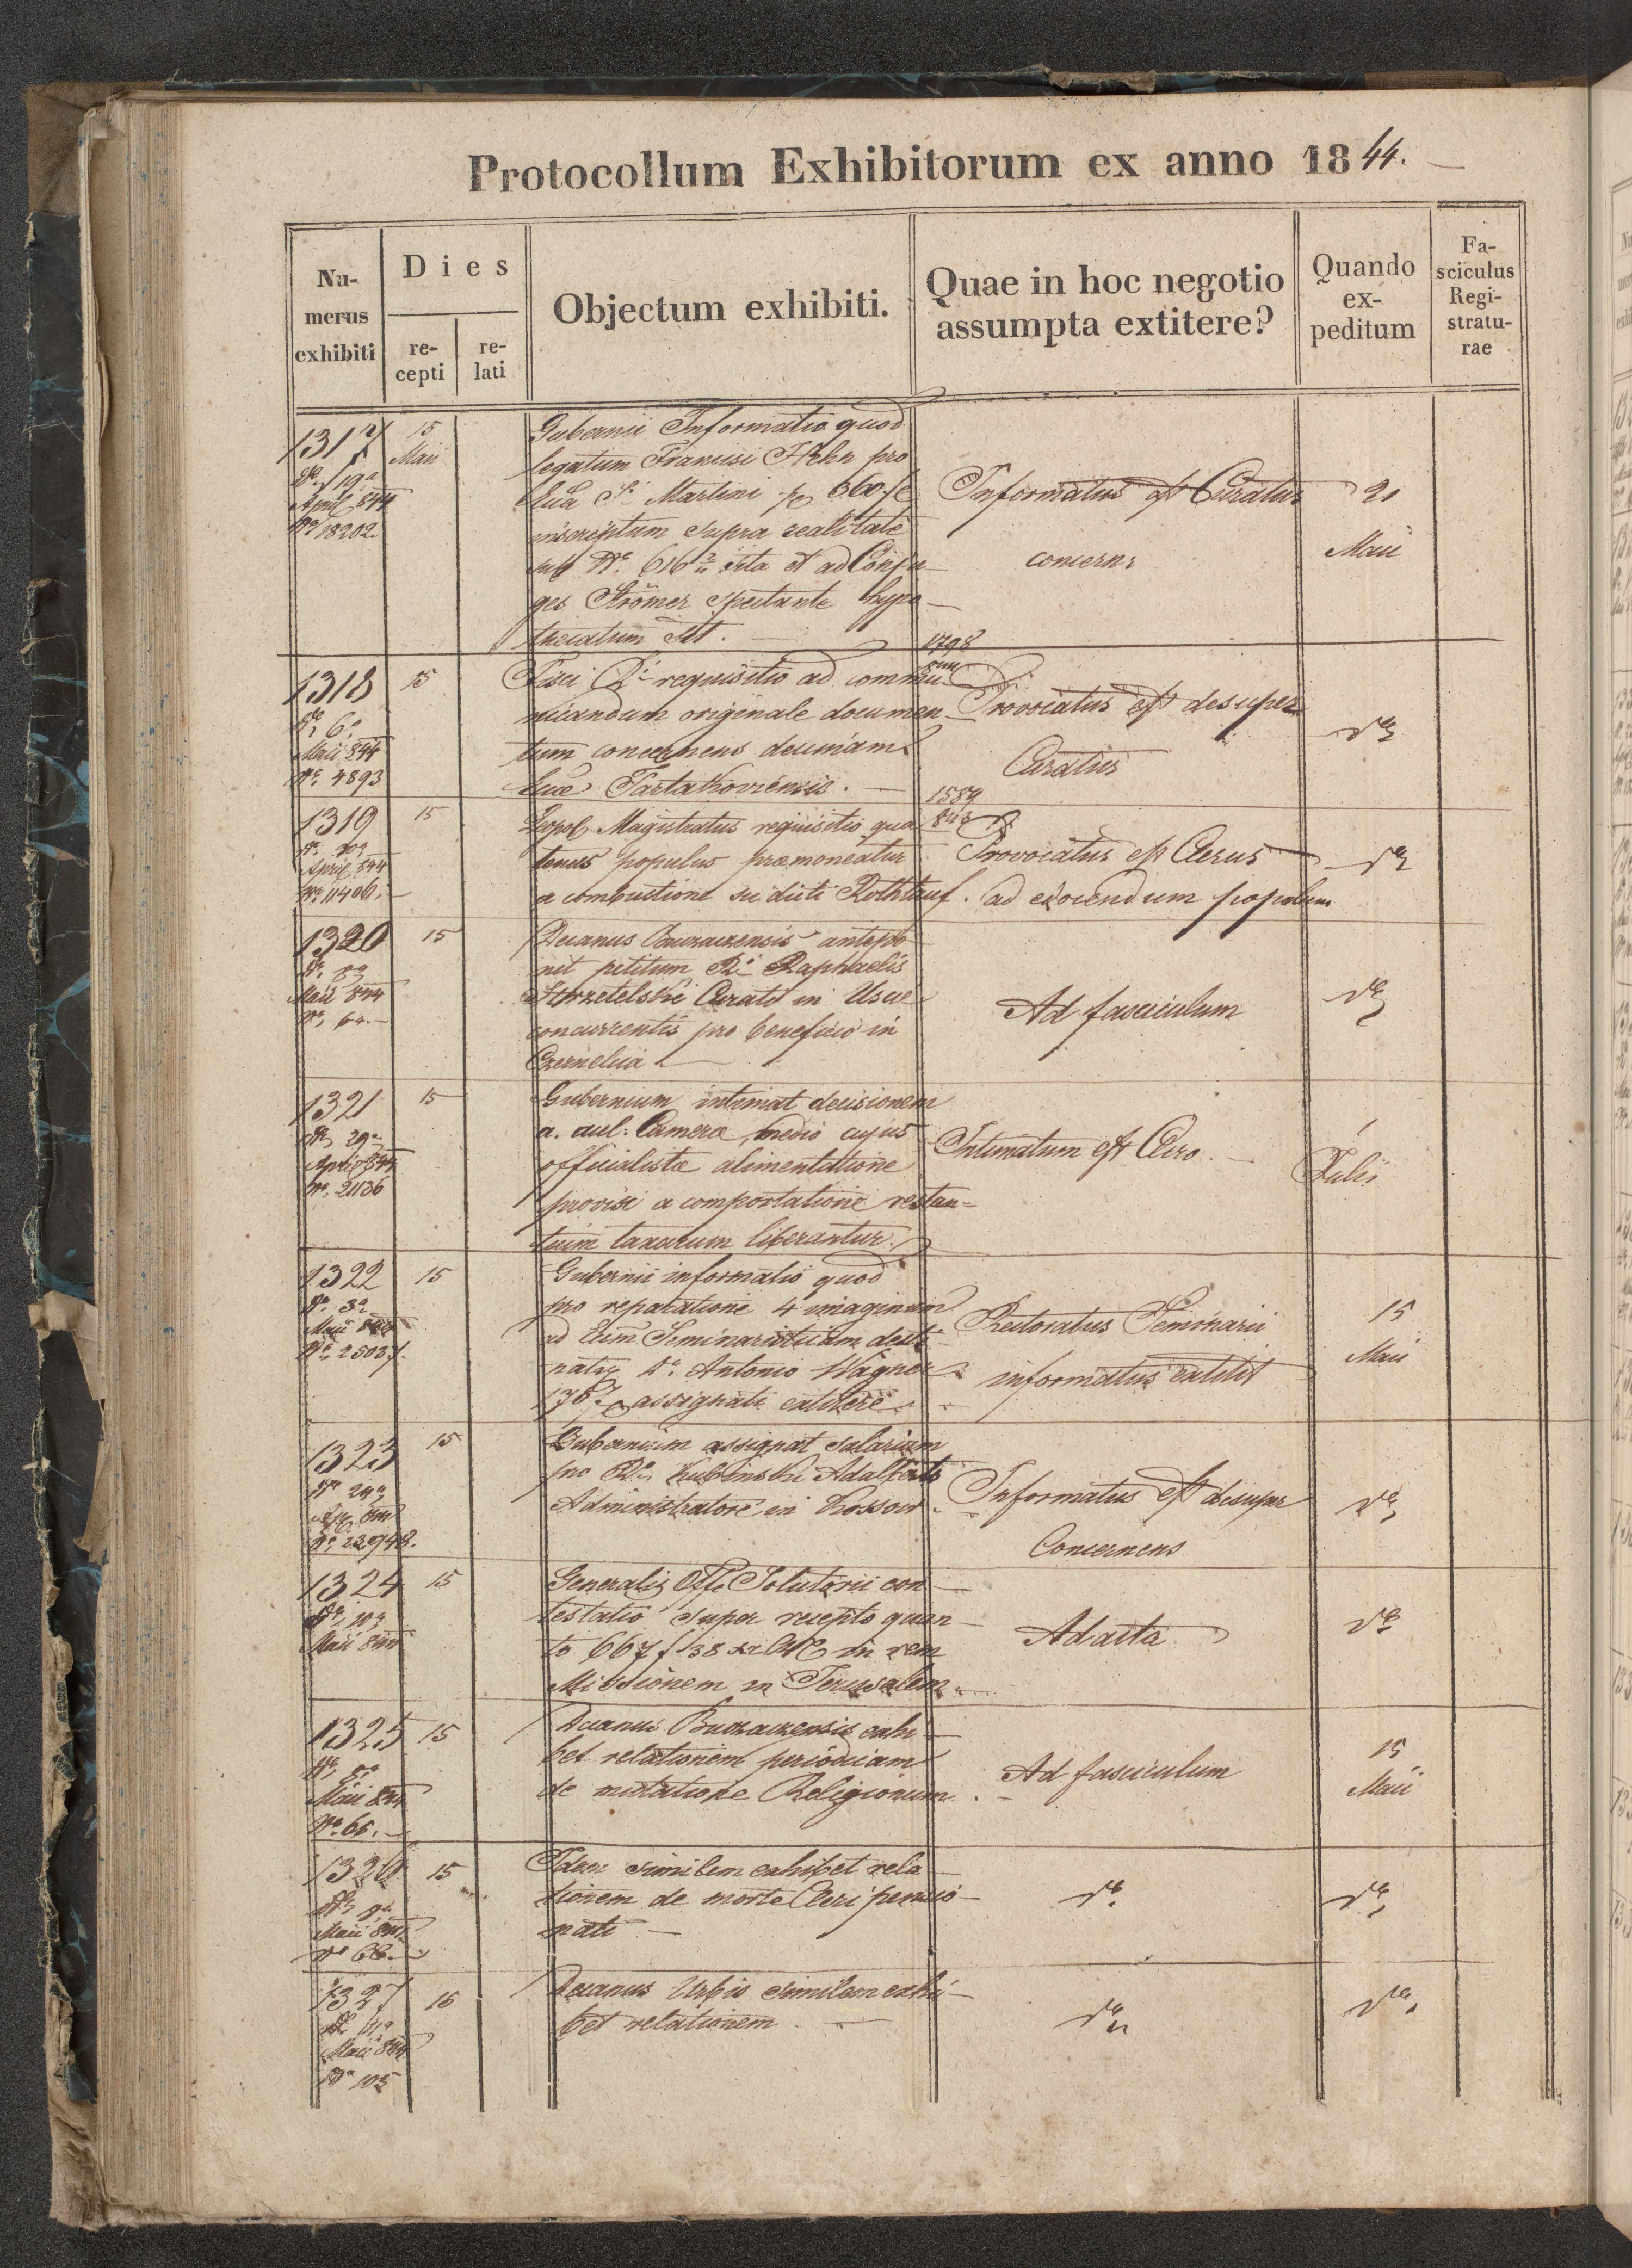 Protocollum Exhibitorum ex anno 1844.
Nu-
merus
exhibiti
Dies
re-
cepti
re-
lati
Objectum exhibiti.
Quae in hoc negotio
assumpta extitere?
Quando
ex-
peditum
Fa-
sciculus
Regi-
stratu-
rae
1317
19a
April 844
No 18202.
15
Maii
Gubernii Informatio quod
legatum Francisci Hehn pro
Ecclia S. Martini pr 660 f
inscriptum supra realitate
sub No. 616 2/4 sita et ad Conju-
ges Strömer spectante hypo-
thecatum sit.
Informatus est Curatus
concern:
21
Maii
1318
6a
Maii 844
No. 4893
15
Fisci R. requisitio ad commu-
nicandum originale documen-
tum concernens decimam
Ecclae Tartakoviensis.
1798
Provocatus est desuper
Curatus
do
1319
10a
April 844
No. 11406.
15
Leopol. Magistratus requisitio qua-
tenus populus praemoneatur
a combustione sic dicti
1589
843
Provocatus est Clerus
ad edocendum populum
do
1320
8a
Maii 844
No 64.
15
Decanus Buczaczensis antepo-
nit petitum R. Raphaelis
Strzetelski Curati in Uscie
concurrentis pro beneficio in
Czernelica
Ad fasciculum
do
1321
29a
April 844
No. 21136
15
Gubernium intimat decisionem
a. aul: Camerae, medio cujus
officialistae alimentatione
provisi a comportatione restan-
tium taxarum liberantur.
Intimatum est Clero.
1
Julii
1322
3a
Maii 844
No. 25037.
15
Gubernii informatio quod
pro reparatione 4 imaginum
ad Ecclm Seminaristicam desti-
natis Do. Antonio Wagner
assignati extitere.
Rectoratus Seminarii
informatus extitit
15
Maii
1323
24a
Apr. 844
No. 22948.
15
Gubernium assignat salarium
pro Ro. Kubinski Adalberto
Administratore in Kossow.
Informatus est desuper
Concernens
do
1324
10a
Maii 844
15
Generalis Offi Solutorii con-
testatio super recepto quan-
to 667 f 38 xr in rem
Missionem in Jerusalem.
Ad acta
do
1325
8a
Maii 844
No. 65.
15
Decanus Buczaczensis exhi-
bet relationem periodicam
de mutatione Religionum.
Ad fasciculum
15
Maii
1326
8a
Maii 844
No 66.
15
Idem similem exhibet rela-
tionem de morte Cleri pensio-
nati
do
do
1327
11a
Maii 844
No 105
16
Decanus Urbis similem exhi-
bet relationem.
do
do